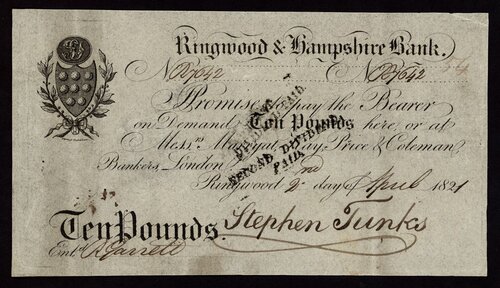 Ringwood & Hampshire Bank.
No B7042 No B7042
I Promise to pay the Bearer
on Demand Ten Pounds here, or at
Messrs Kay, Price & Coleman
Bankers, London
SECOND DIVIDEND
PAID
Ringwood 2nd day of April 1821
Ten Pounds. Stephen Tunks
Entd Garrett